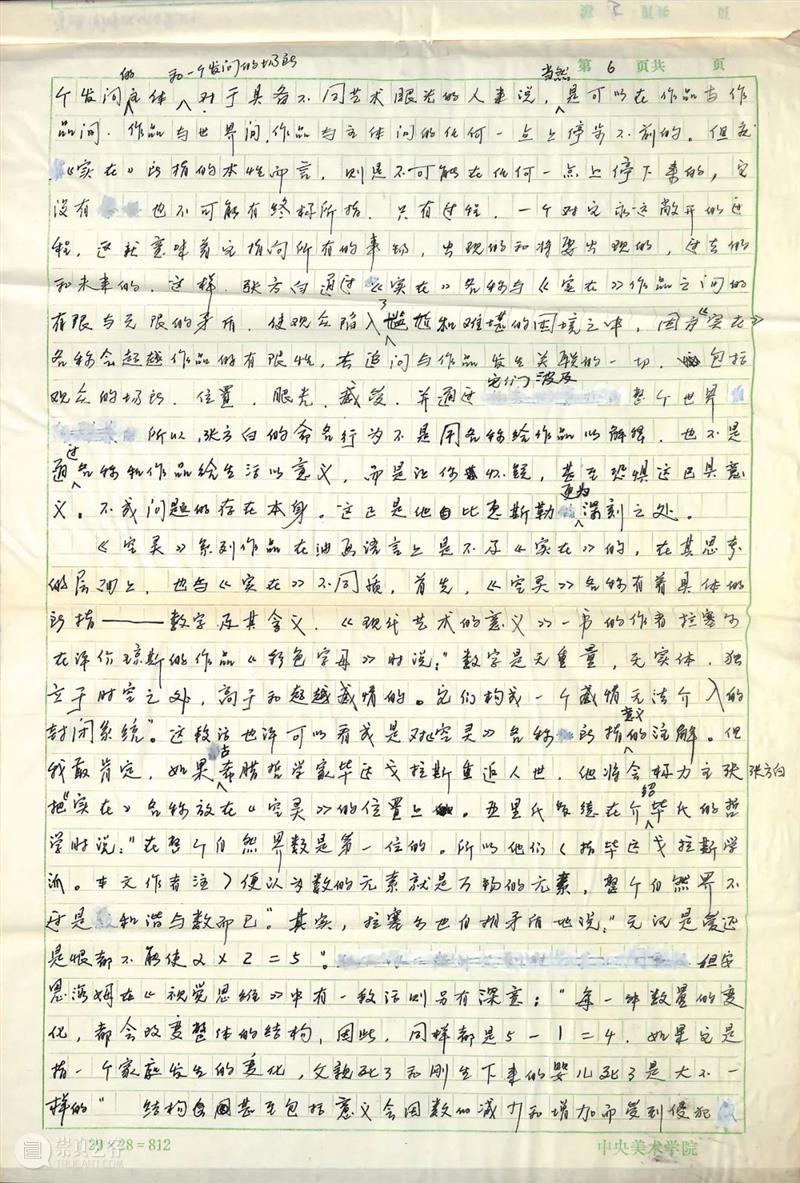 第 6 页共 页
的 和一个发问的场所 当然
个发问主体 对于具备不同艺术眼光的人来说,是可以在作品与作
品间,作品与世界间,作品与主体间的任何一点上停步不前的。但就
《实在》所指的本性而言,则是不可能在任何一点上停下来的,它
没有 也不可能有终极所指,只有过程,一个对它永远敞开的过
程,这就意味着它指向所有的事物,出现的和将要出现的,过去的
和未来的。这样,张方白通过《实在》名称与《实在》作品之间的
有限与无限的矛盾,使观众陷入了尴尬和难堪的困境之中,因为《实在》
名称会超越作品的有限性,去追问与作品发生关联的一切,包括
观众的场所,位置,眼光,感受,并通过它们波及 整个世界
所以,张方白的命名行为不是用名称给作品以解释,也不是
通过名称和作品给生活以意义,而是让你怀疑,甚至恐惧这已具意
义,不成问题的存在本身。这正是他比惠斯勒更为深刻之处。
《空灵》系列作品在油画语言上是不及《实在》的,在其思考
的层面上,也与《实在》不同质,首先,《空灵》名称有着具体的
所指——数字及其含义,《现代艺术的意义》一书的作者拉塞尔
在评价琼斯的作品《彩色字母》时说:"数字是无重量,无实体,独
立于时空之外,高于和超越感情的。它们构成一个感情无法介入的
封闭系统"。这段话也许可以看成是对《空灵》名称所指意义的注解。但
我敢肯定,如果古希腊哲学家毕达戈拉斯重返人世,他将会极力主张张方白
把《实在》名称放在《空灵》的位置上。亚里氏多德在介绍毕氏的哲
学时说:"在整个自然界数是第一位的。所以他们(指毕达戈拉斯学
派。本文作者注)便认为数的元素就是万物的元素,整个自然界不
过是和谐与数而已"。其实,拉塞尔也自相矛盾地说:"无论是爱还
是恨都不能使2×2=5"。 但安
恩海姆在《视觉思维》中有一段话则另有深意:"每一种数量的变
化,都会改变整体的结构,因此,同样都是5-1=4,如果它是
指一个家庭发生的变化,父亲死了和刚生下来的婴儿死了是大不一
样的" 结构甚至包括意义会因数的减少和增加而受到侵犯
29×28=812 中央美术学院
崇真艺客
TRUE-ART.COM